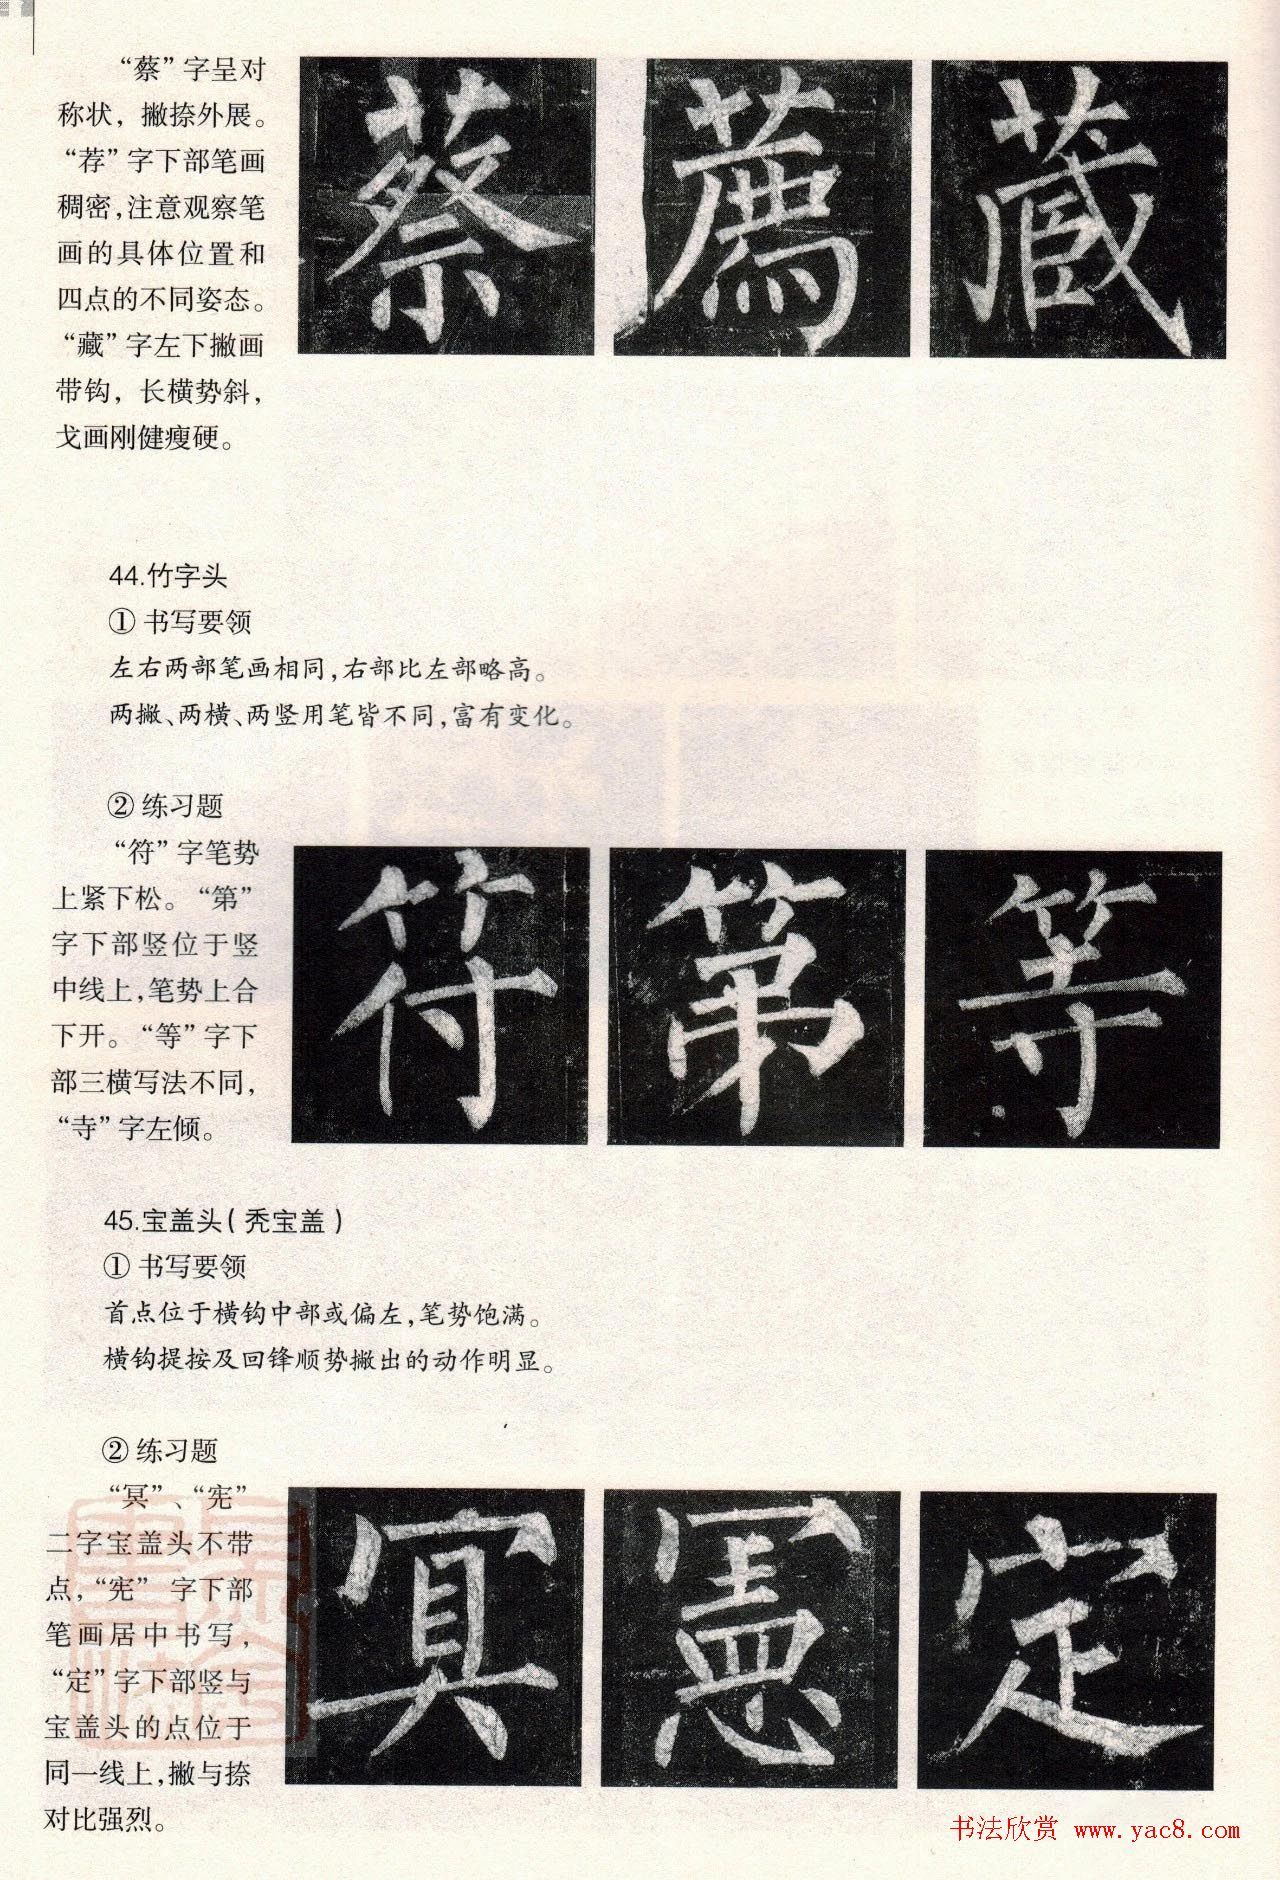 “蔡”字呈对
称状，撇捺外展。
“荐”字下部笔画
稠密，注意观察笔
画的具体位置和
四点的不同姿态。
“藏”字左下撇画
带钩，长横势斜，
戈画刚健瘦硬。
蔡 薦 藏
44.竹字头
① 书写要领
左右两部笔画相同，右部比左部略高。
两撇、两横、两竖用笔皆不同，富有变化。
② 练习题
“符”字笔势
上紧下松。“第”
字下部竖位于竖
中线上，笔势上合
下开。“等”字下
部三横写法不同，
“寺”字左倾。
符 第 等
45.宝盖头（秃宝盖）
① 书写要领
首点位于横钩中部或偏左，笔势饱满。
横钩提按及回锋顺势撇出的动作明显。
② 练习题
“冥”、“宪”
二字宝盖头不带
点，“宪” 字下部
笔画居中书写，
“定”字下部竖与
宝盖头的点位于
同一线上，撇与捺
对比强烈。
冥 憲 定
书法欣赏 www.yac8.com